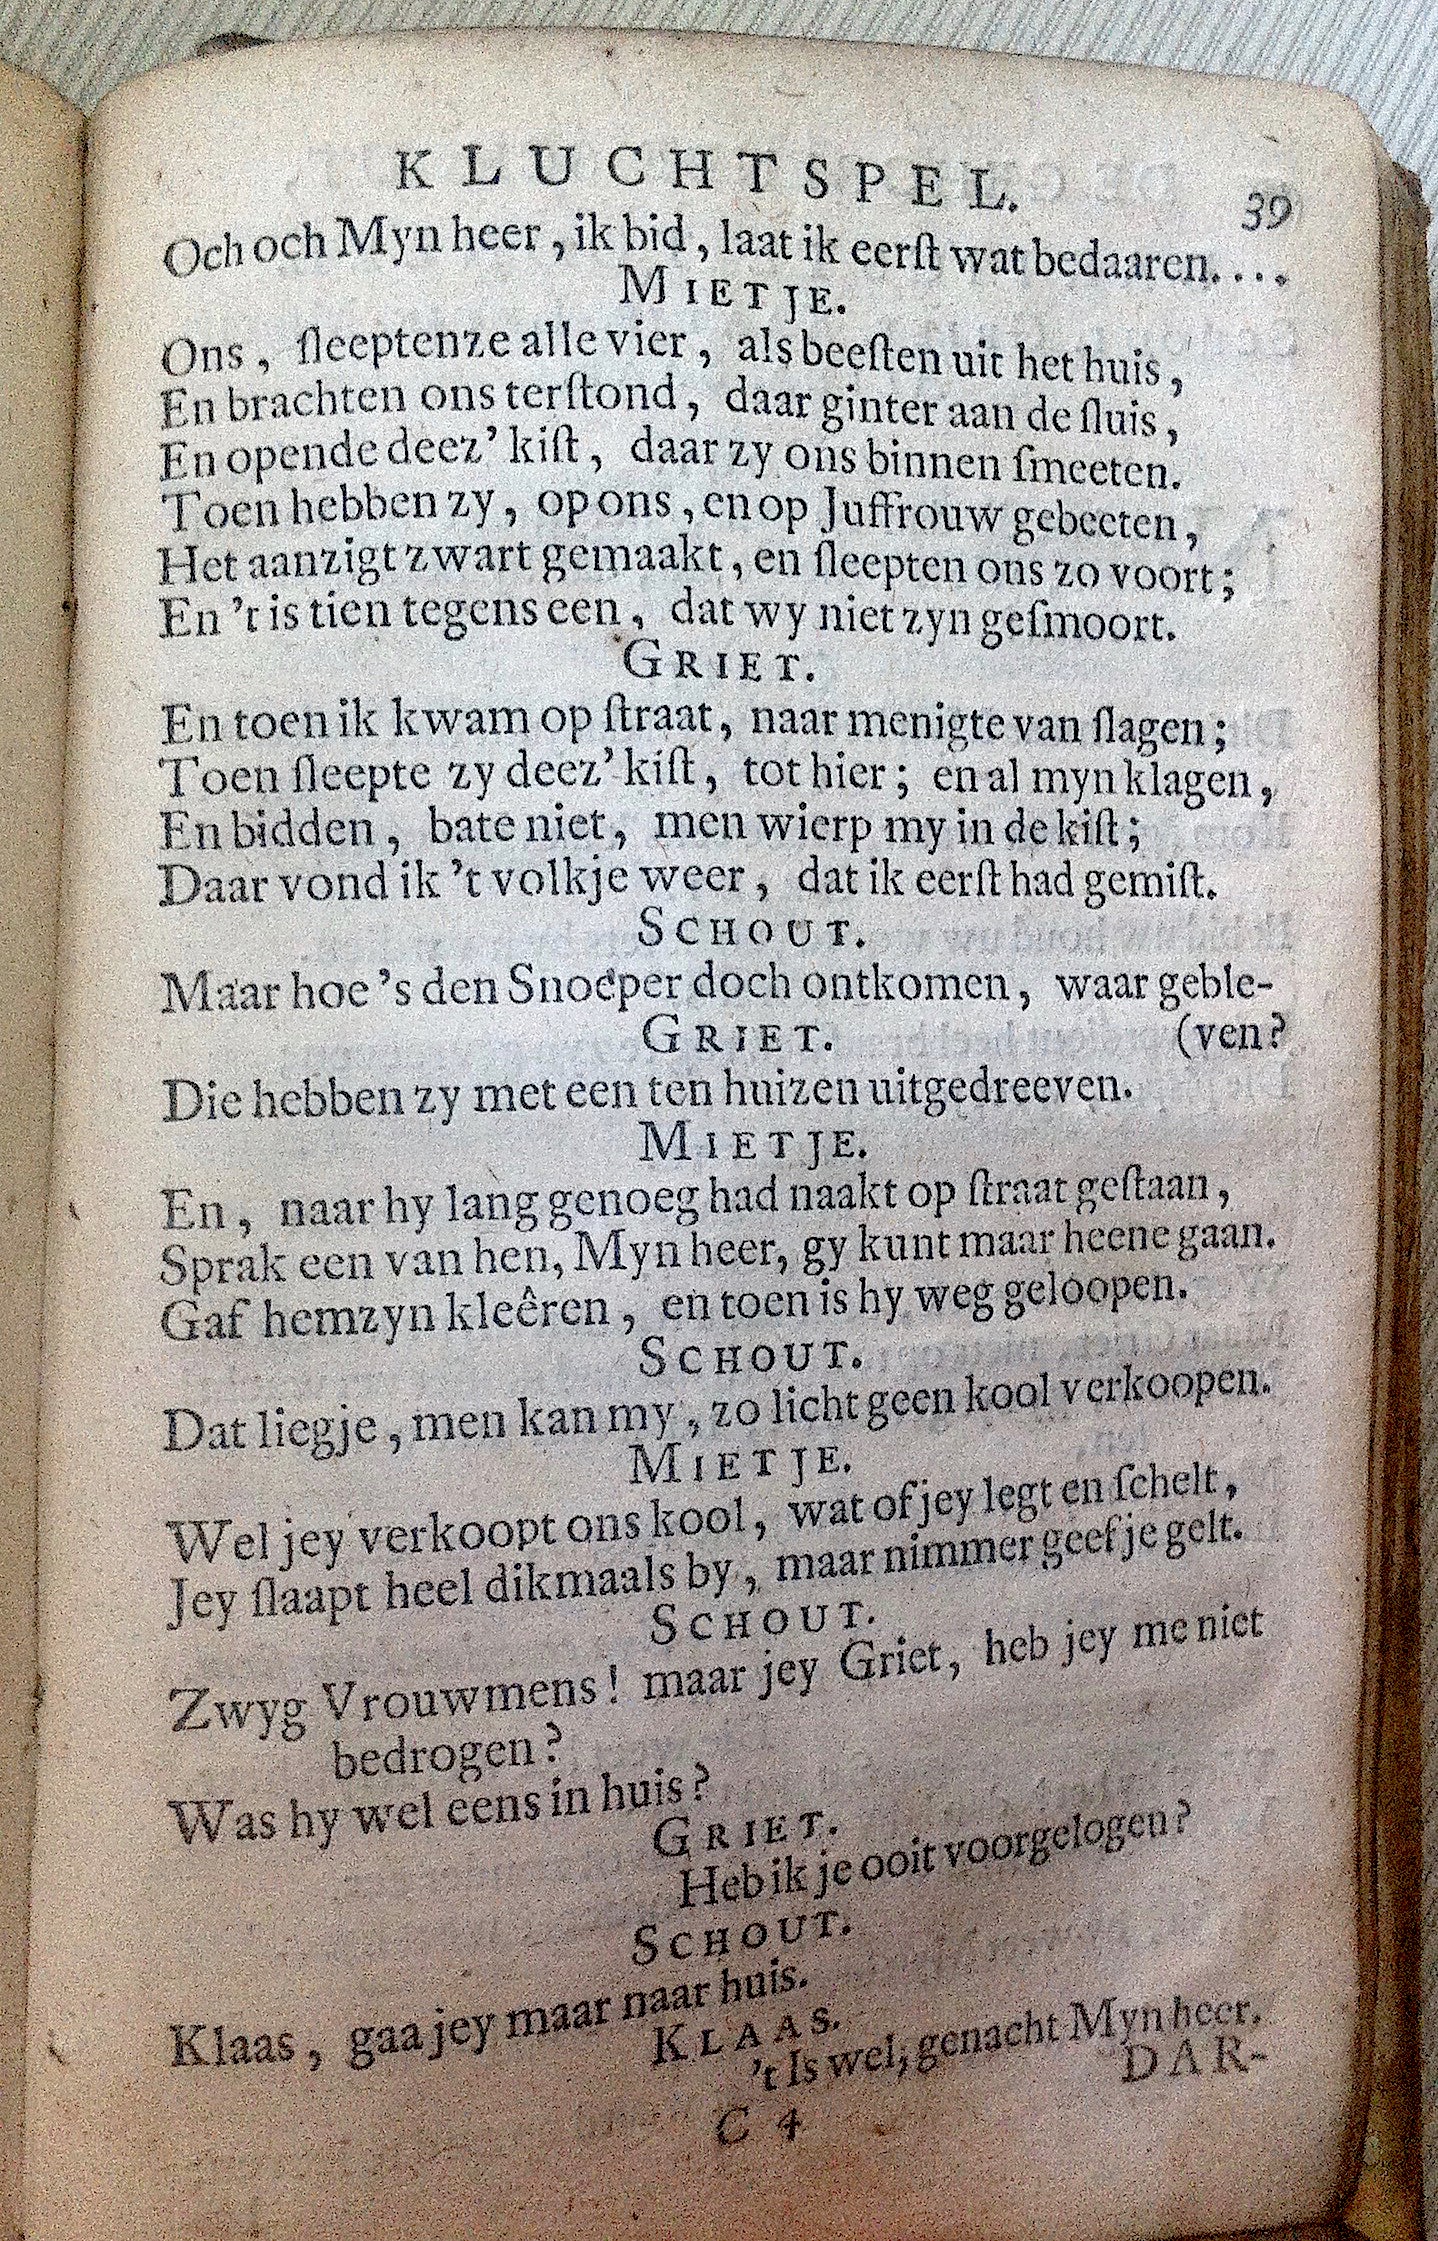 KLUCHTSPEL. 39
Och och Myn heer, ik bid, laat ik eerſt wat bedaaren....
MIETJE.
Ons, ſleeptenze alle vier, als beeſten uit het huis,
En brachten ons terſtond, daar ginter aan de ſluis,
En opende deez' kiſt, daar zy ons binnen ſmeeten.
Toen hebben zy, op ons, en op Juffrouw gebeeten,
Het aanzigt zwart gemaakt, en ſleepten ons zo voort;
En 't is tien tegens een, dat wy niet zyn geſmoort.
GRIET.
En toen ik kwam op ſtraat, naar menigte van ſlagen;
Toen ſleepte zy deez' kiſt, tot hier; en al myn klagen,
En bidden, bate niet, men wierp my in de kiſt;
Daar vond ik 't volkje weer, dat ik eerſt had gemiſt.
SCHOUT.
Maar hoe 's den Snoeper doch ontkomen, waar geble-
GRIET. (ven?
Die hebben zy met een ten huizen uitgedreeven.
MIETJE.
En, naar hy lang genoeg had naakt op ſtraat geſtaan,
Sprak een van hen, Myn heer, gy kunt maar heene gaan.
Gaf hem zyn kleêren, en toen is hy weg geloopen.
SCHOUT.
Dat liegje, men kan my, zo licht geen kool verkoopen.
MIETJE.
Wel jey verkoopt ons kool, wat of jey legt en ſchelt,
Jey ſlaapt heel dikmaals by, maar nimmer geef je gelt.
SCHOUT.
Zwyg Vrouwmens! maar jey Griet, heb jey me niet
bedrogen?
Was hy wel eens in huis?
GRIET.
Heb ik je ooit voorgelogen?
SCHOUT.
Klaas, gaa jey maar naar huis.
KLAAS.
't Is wel, genacht Myn heer.
DAR-
C 4